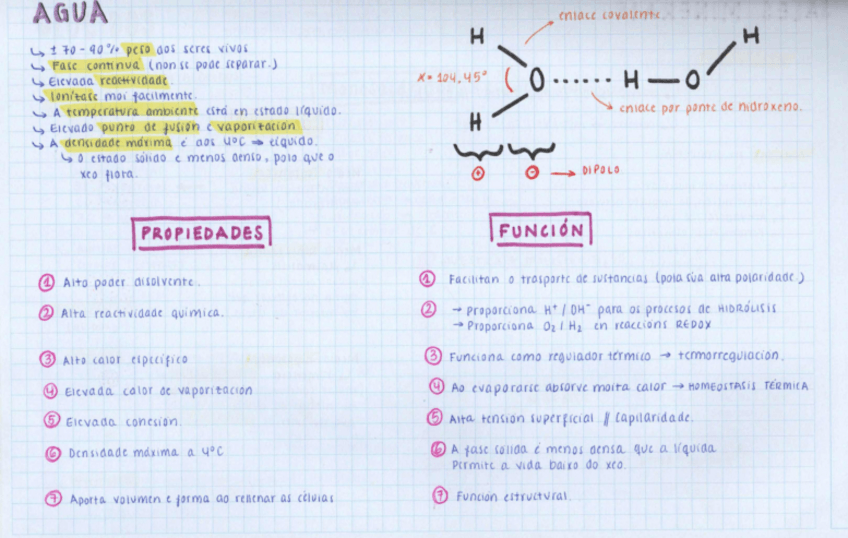 AGUA
↳ ± 70-90% peso dos seres vivos
↳ Fase continua (non se pode separar.)
↳ Elevada reactividade.
↳ Ionízase moi facilmente.
↳ A temperatura ambiente está en estado líquido.
↳ Elevado punto de fusión e vaporización
↳ A densidade máxima é aos 4ºC ⇒ líquido.
↳ O estado sólido e menos denso, polo que o
xeo flota.
enlace covalente.
H
H
α = 104,45°
O ...... H — O
H
enlace por ponte de hidróxeno.
⊕ ⊖ → DIPOLO
PROPIEDADES
① Alto poder disolvente.
② Alta reactividade química.
③ Alto calor específico
④ Elevada calor de vaporización
⑤ Elevada cohesión.
⑥ Densidade máxima a 4ºC
⑦ Aporta volumen e forma ao rellenar as células
FUNCIÓN
① Facilitan o trasporte de sustancias (pola súa alta polaridade.)
② → Proporciona H⁺ / OH⁻ para os procesos de HIDRÓLISIS
→ Proporciona O₂ / H₂ en reaccións REDOX
③ Funciona como regulador térmico → termorregulación.
④ Ao evaporarse absorve moita calor → HOMEOSTASIS TÉRMICA
⑤ Alta tensión superficial // Capilaridade.
⑥ A fase sólida é menos densa que a líquida
Permite a vida baixo do xeo.
⑦ Función estructural.